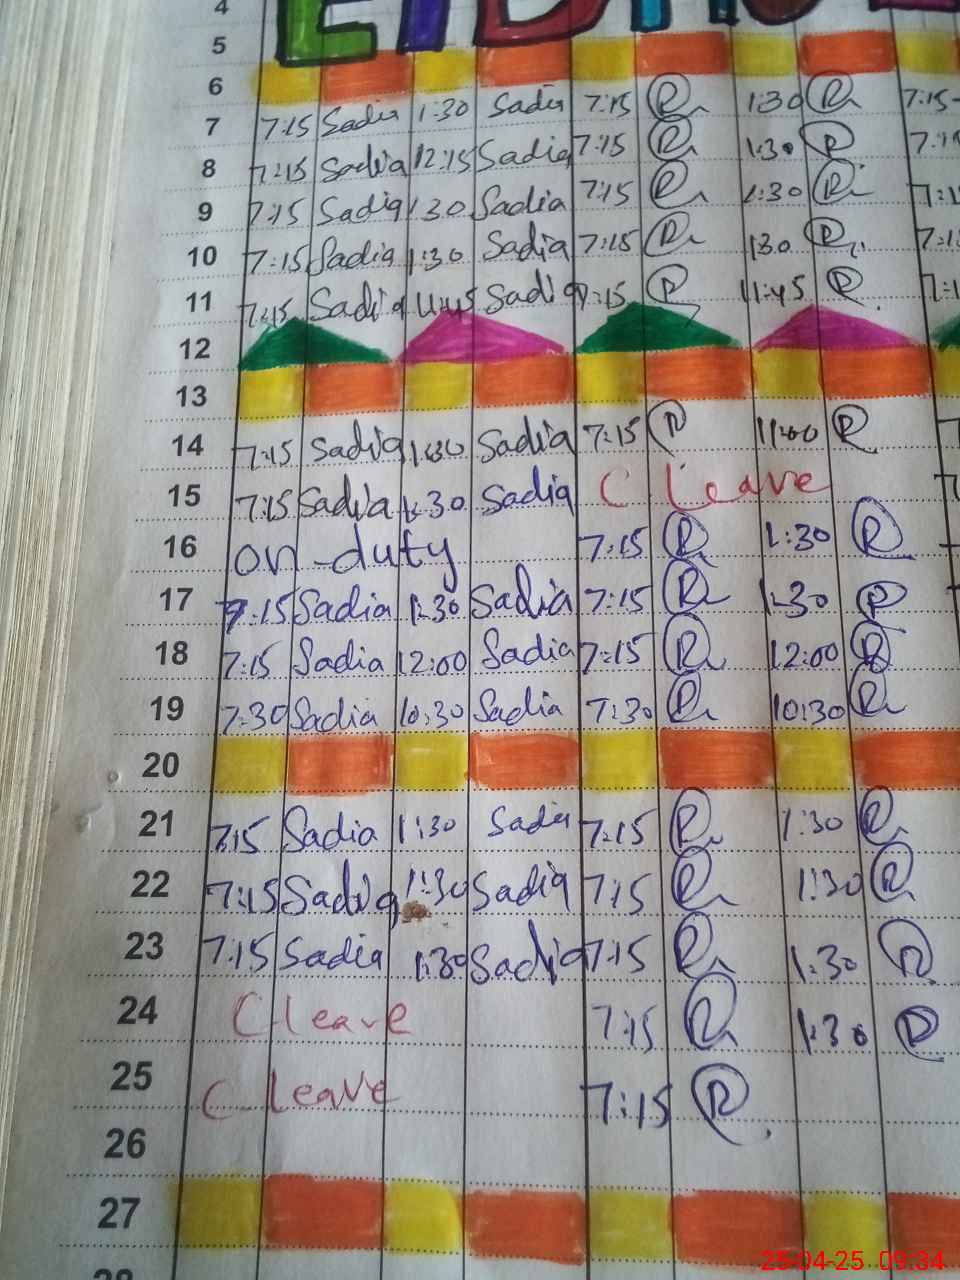 4
5
6
7 7:15 Sadia 1:30 Sadia 7:15 R 1:30 R 7:15
8 7:15 Sadia 12:15 Sadia 7:15 R 1:30 R
9 7:15 Sadia 1:30 Sadia 7:15 R 1:30 R
10 7:15 Sadia 1:30 Sadia 7:15 R 1:30 R
11 7:15 Sadia 11:45 Sadia 7:15 R 11:45 R
12
13
14 7:15 Sadia 1:30 Sadia 7:15 R 11:00 R
15 7:15 Sadia 1:30 Sadia C leave
16 on-duty 7:15 R 1:30 R
17 7:15 Sadia 1:30 Sadia 7:15 R 1:30 R
18 7:15 Sadia 12:00 Sadia 7:15 R 12:00 R
19 7:30 Sadia 10:30 Sadia 7:30 R 10:30 R
20
21 7:15 Sadia 1:30 Sadia 7:15 R 1:30 R
22 7:15 Sadia 1:30 Sadia 7:15 R 1:30 R
23 7:15 Sadia 1:30 Sadia 7:15 R 1:30 R
24 C leave 7:15 R 1:30 R
25 C leave 7:15 R
26
27
25-04-25 09:34